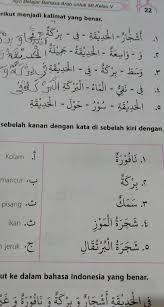 Ayo Belajar Bahasa Arab untuk MI Kelas V
22
erikut menjadi kalimat yang benar.
١. أَشْجَارٌ - الْحَدِيْقَةِ - فِي - بِرْكَةٌ
٢. و - وَاسِعَةٌ - الْحَدِيْقَةُ - جَمِيْلَةٌ
٣. وَسَطِ - بِرْكَةٌ - فِي - الْحَدِيْقَةِ
٤. فِي - نَقِيٌّ - الْمَاءُ - الْبِرْكَةِ
٥. الْحَدِيْقَةِ - سُوْرٌ - حَوْلَ - الْحَدِيْقَةِ
sebelah kanan dengan kata di sebelah kiri dengan
١. نَافُوْرَةٌ
أ. Kolam
٢. بِرْكَةٌ
ب. mancur
٣. سَمَكٌ
ت. pisang
٤. شَجَرَةُ الْمَوْزِ
ث. ikan
٥. شَجَرَةُ الْبُرْتُقَالِ
ج. jeruk
ut ke dalam bahasa Indonesia yang benar.
الْحَدِيْقَةِ أَشْجَارٌ وَ بِرْكَةٌ وَ نَافُوْرَةٌ وَ